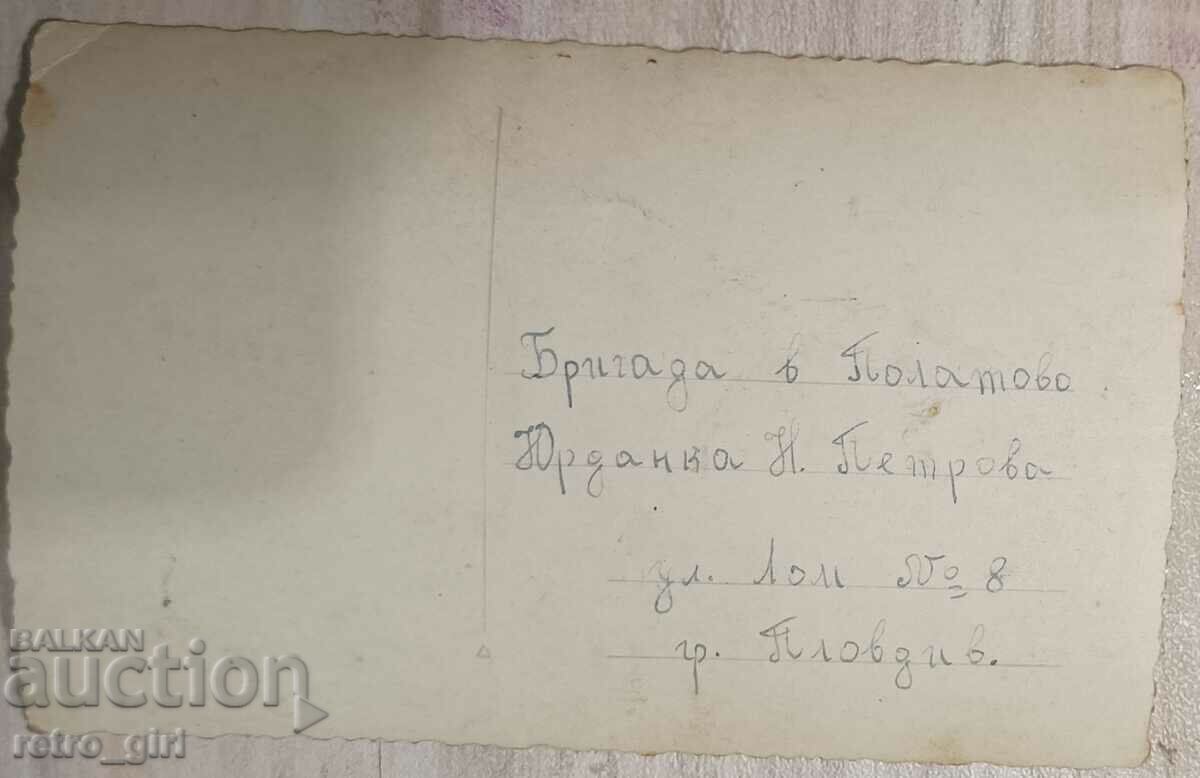 Бригада в Полатово.
Юрданка Н. Петрова
ул. Лом № 8
гр. Пловдив.
BALKAN
auction
retro_girl